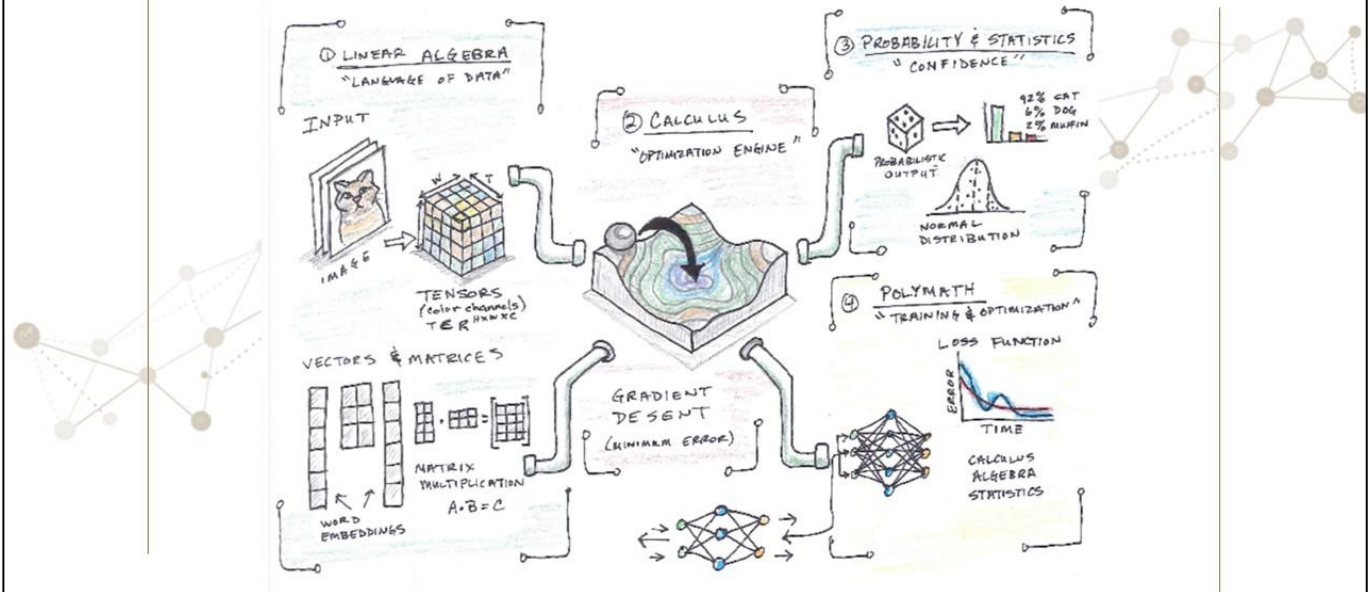 ① LINEAR ALGEBRA
"LANGUAGE OF DATA"
INPUT
IMAGE
W
T
TENSORS
(color channels)
T ∈ R^HxWxC
VECTORS & MATRICES
WORD
EMBEDDINGS
MATRIX
MULTIPLICATION
A•B=C
② CALCULUS
"OPTIMIZATION ENGINE"
GRADIENT
DESENT
(MINIMUM ERROR)
③ PROBABILITY & STATISTICS
"CONFIDENCE"
92% CAT
6% DOG
2% MUFFIN
PROBABILISTIC
OUTPUT
NORMAL
DISTRIBUTION
④ POLYMATH
"TRAINING & OPTIMIZATION"
LOSS FUNCTION
ERROR
TIME
CALCULUS
ALGEBRA
STATISTICS